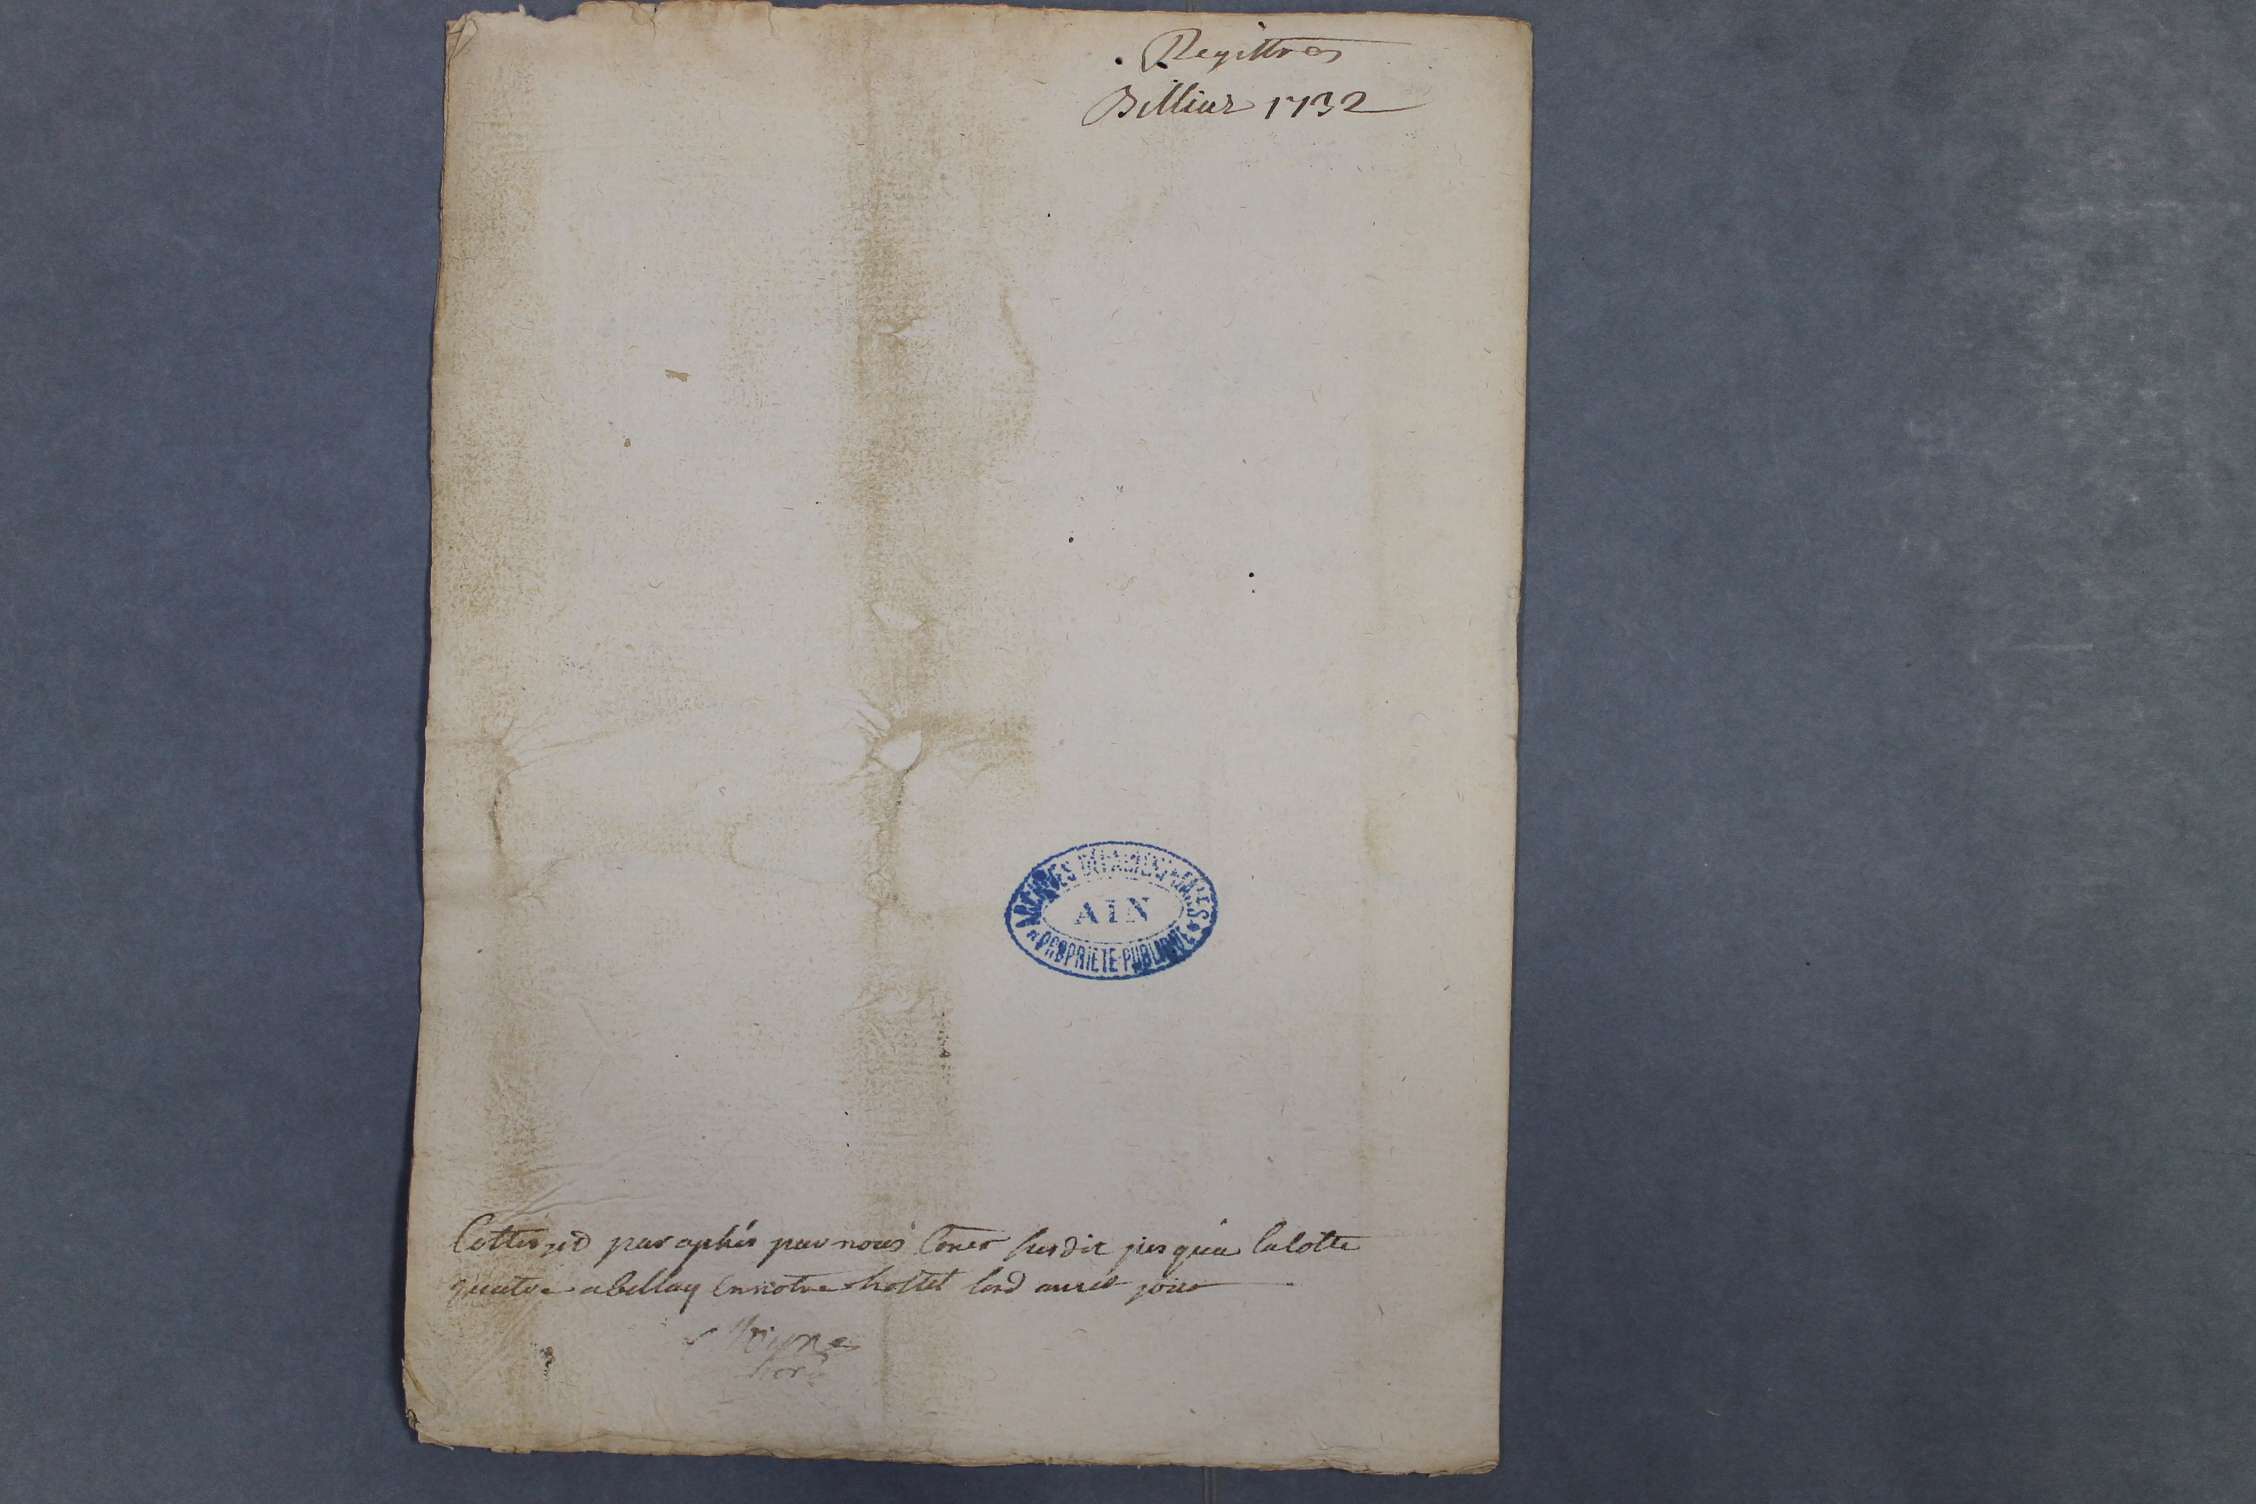 Registres
Billiat 1732
ARCHIVES DÉPARTEMENTALES
AIN
PROPRIÉTÉ PUBLIQUE
Cottés et paraphés par nous susdit jusqu'a la Cotte
quatre a bellay en notre hostel an et jour